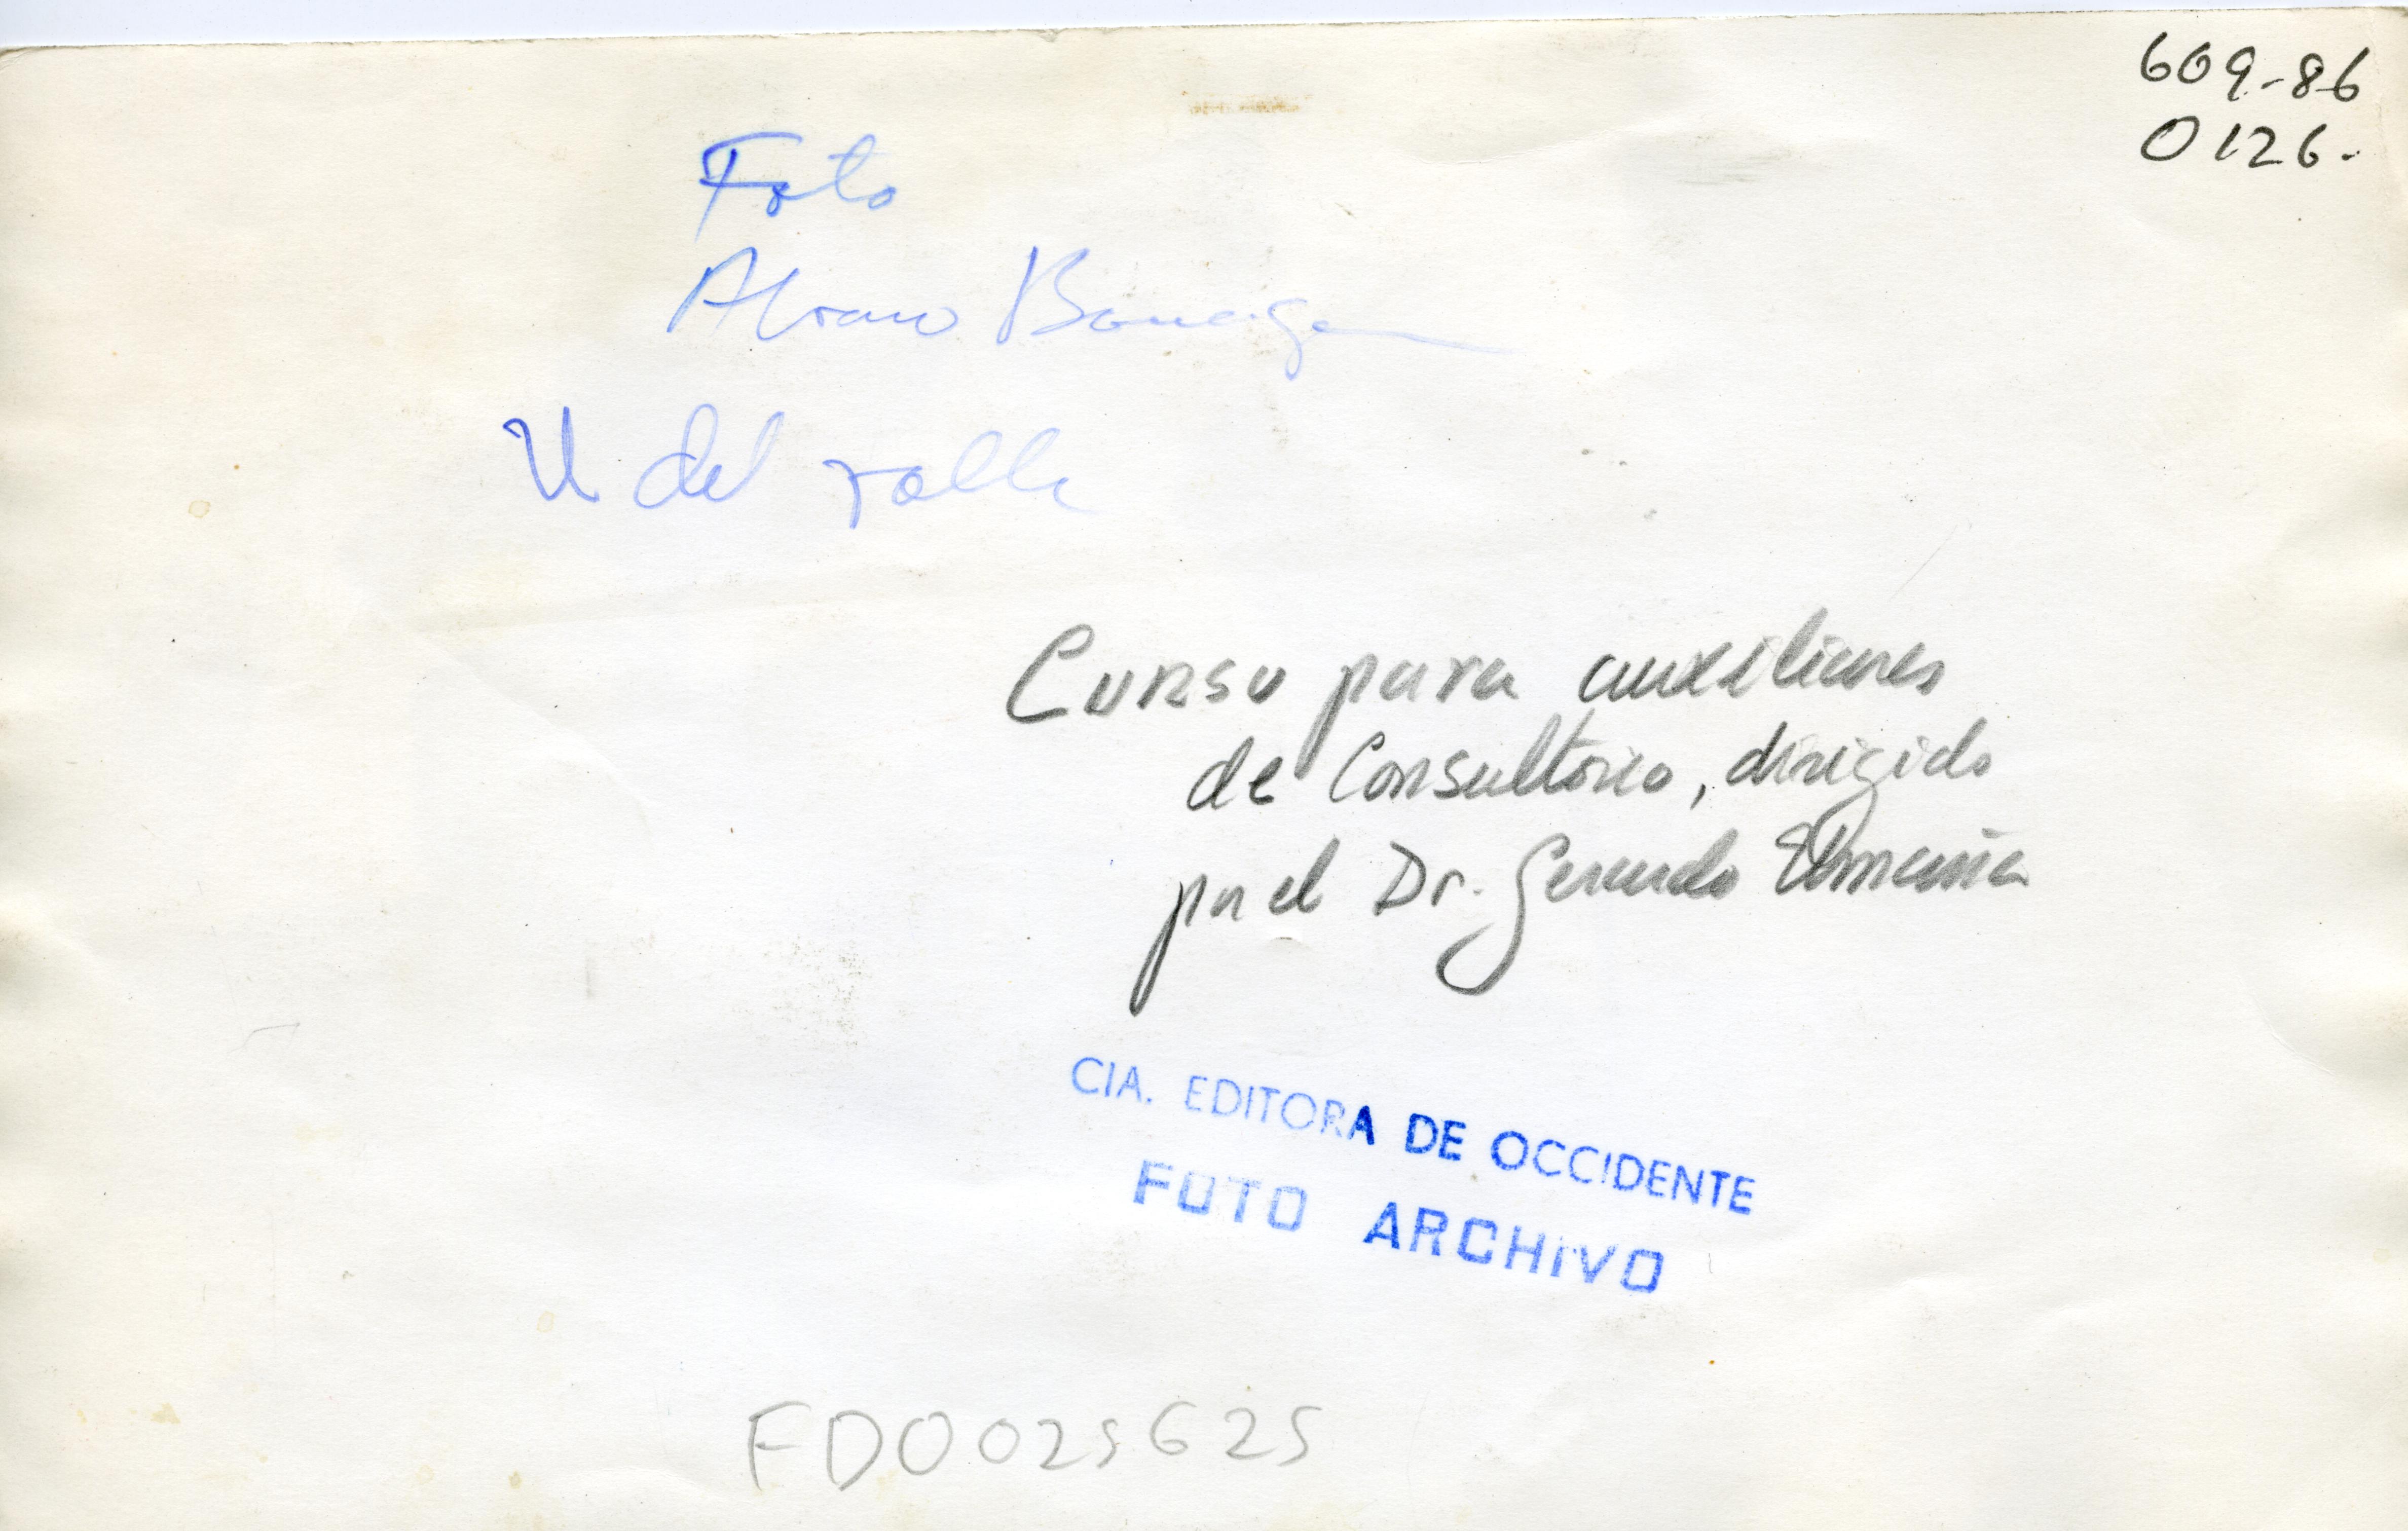 609-86
0126-
Foto
Alvaro
U del valle
Curso para auxiliares
de Consultorio, dirigido
por el Dr. Gerardo
CIA. EDITORA DE OCCIDENTE
FOTO ARCHIVO
FD0025625